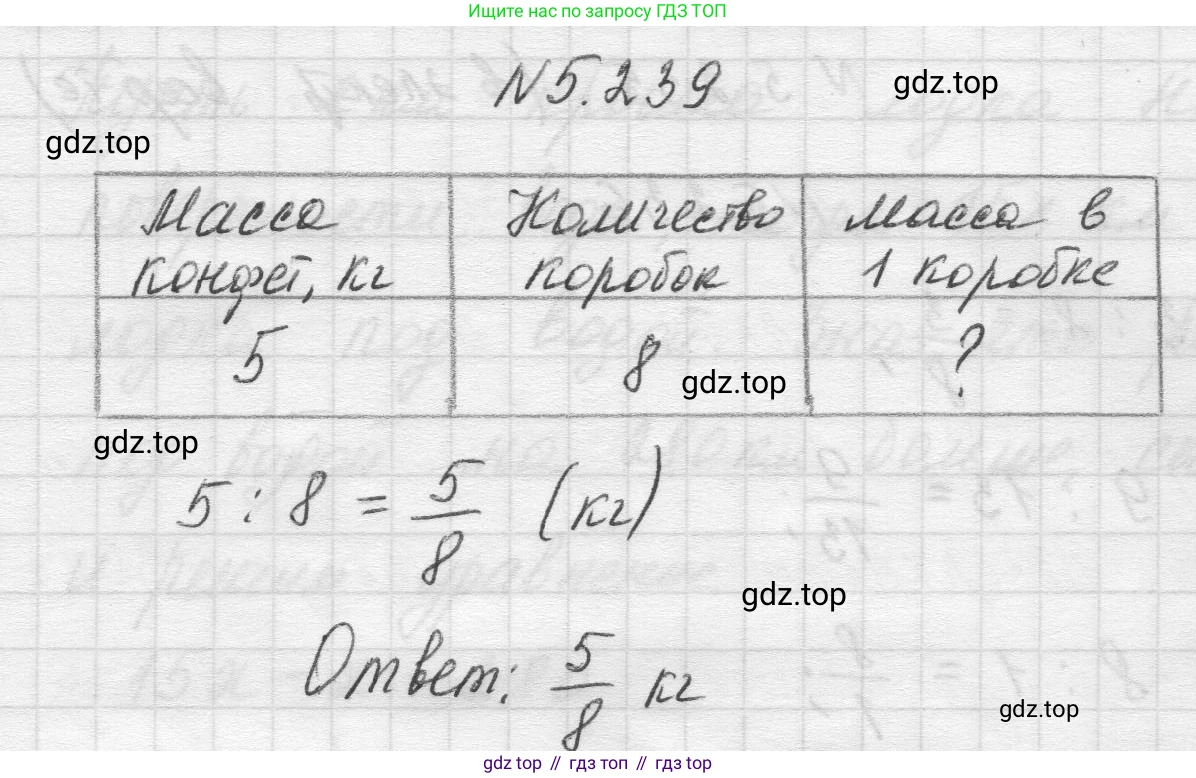 Ищите нас по запросу ГДЗ ТОП
N 5.239
gdz.top
gdz.top
Масса конфет, кг
Количество коробок
Масса в 1 коробке
5
8
?
gdz.top
gdz.top
5 : 8 = 5/8 (кг)
gdz.top
Ответ: 5/8 кг
gdz.top
gdz.top // гдз топ // гдз.top